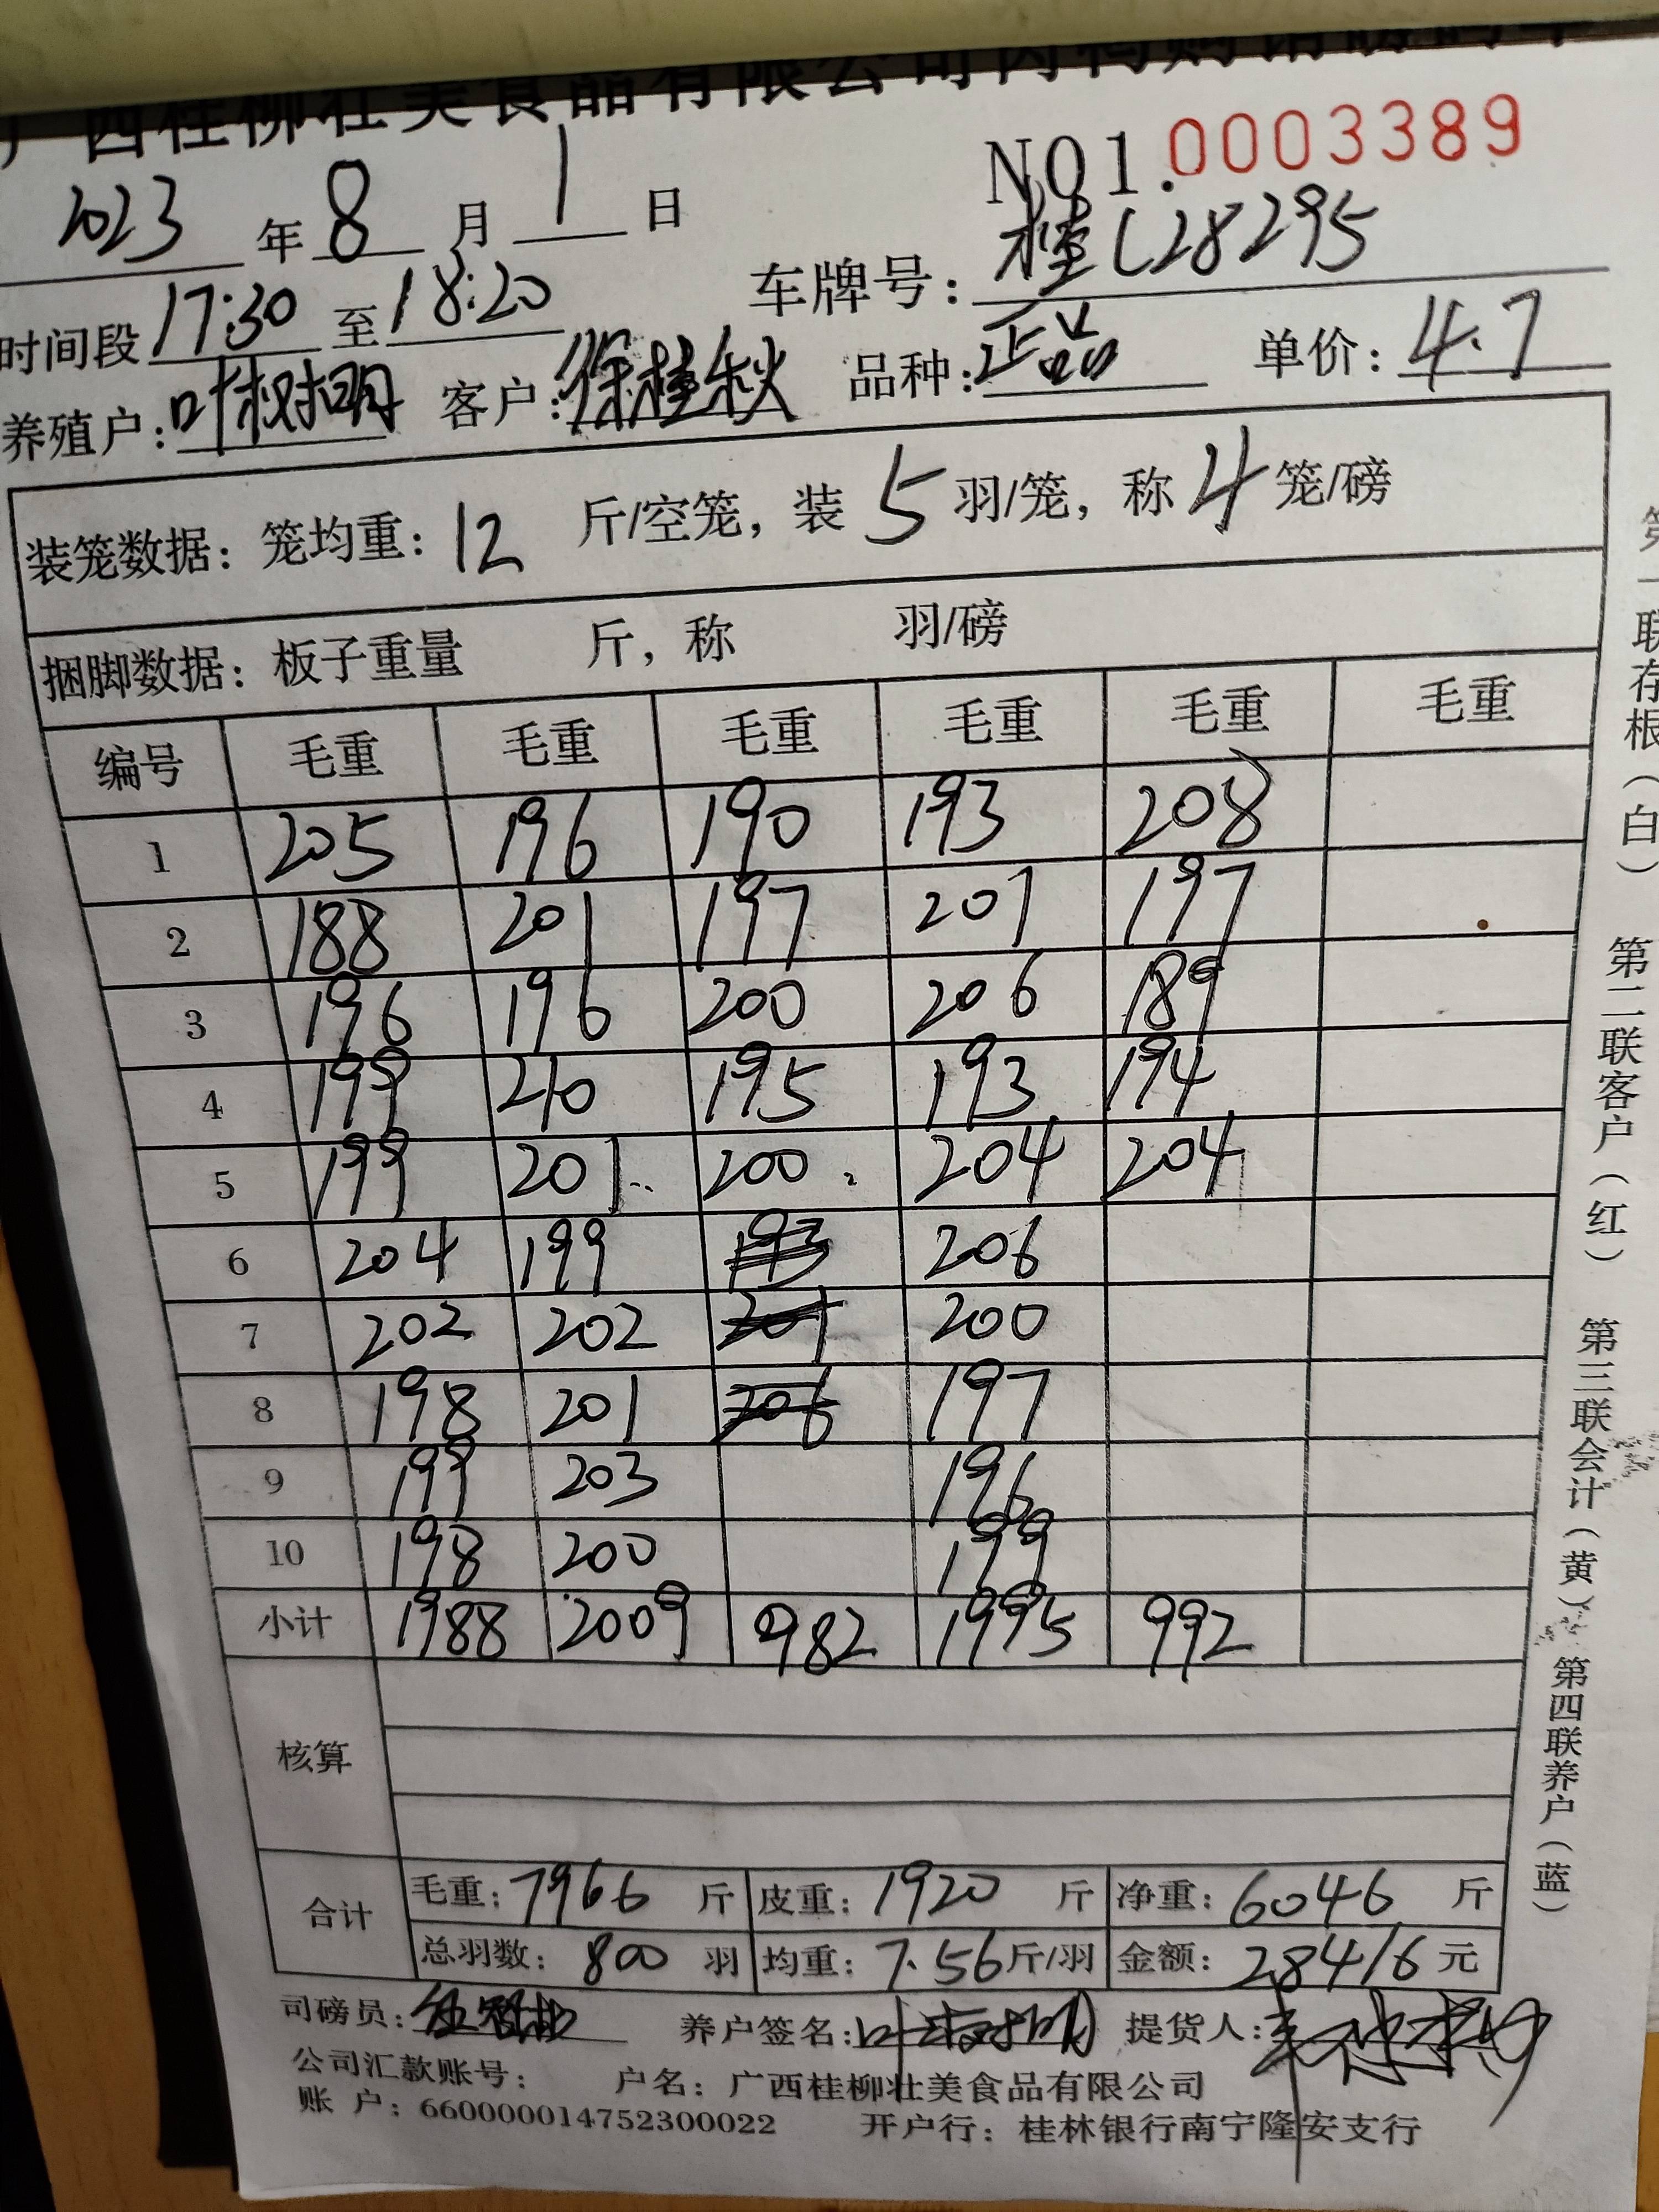 广西桂柳壮美食品有限公司肉鸭购销磅码单
NO1.0003389
2023 年 8 月 1 日
车牌号: 桂C28295
时间段 17:30 至 18:20
养殖户: 叶树明 客户: 徐桂秋 品种: 正品 单价: 4.7
装笼数据: 笼均重: 12 斤/空笼, 装 5 羽/笼, 称 4 笼/磅
捆脚数据: 板子重量 斤, 称 羽/磅
编号 毛重 毛重 毛重 毛重 毛重 毛重
1 205 196 190 193 208
2 188 201 197 201 197
3 196 196 200 206 189
4 199 210 195 193 194
5 199 201 200 204 204
6 204 199 193 206
7 202 202 201 200
8 198 201 206 197
9 199 203 196
10 198 200 199
小计 1988 2009 982 1995 992
核算
合计 毛重: 7966 斤 皮重: 1920 斤 净重: 6046 斤
总羽数: 800 羽 均重: 7.56 斤/羽 金额: 28416 元
司磅员: 养户签名: 叶树明 提货人:
公司汇款账号: 户名: 广西桂柳壮美食品有限公司
账 户: 660000014752300022 开户行: 桂林银行南宁隆安支行
第一联存根(白) 第二联客户(红) 第三联会计(黄) 第四联养户(蓝)